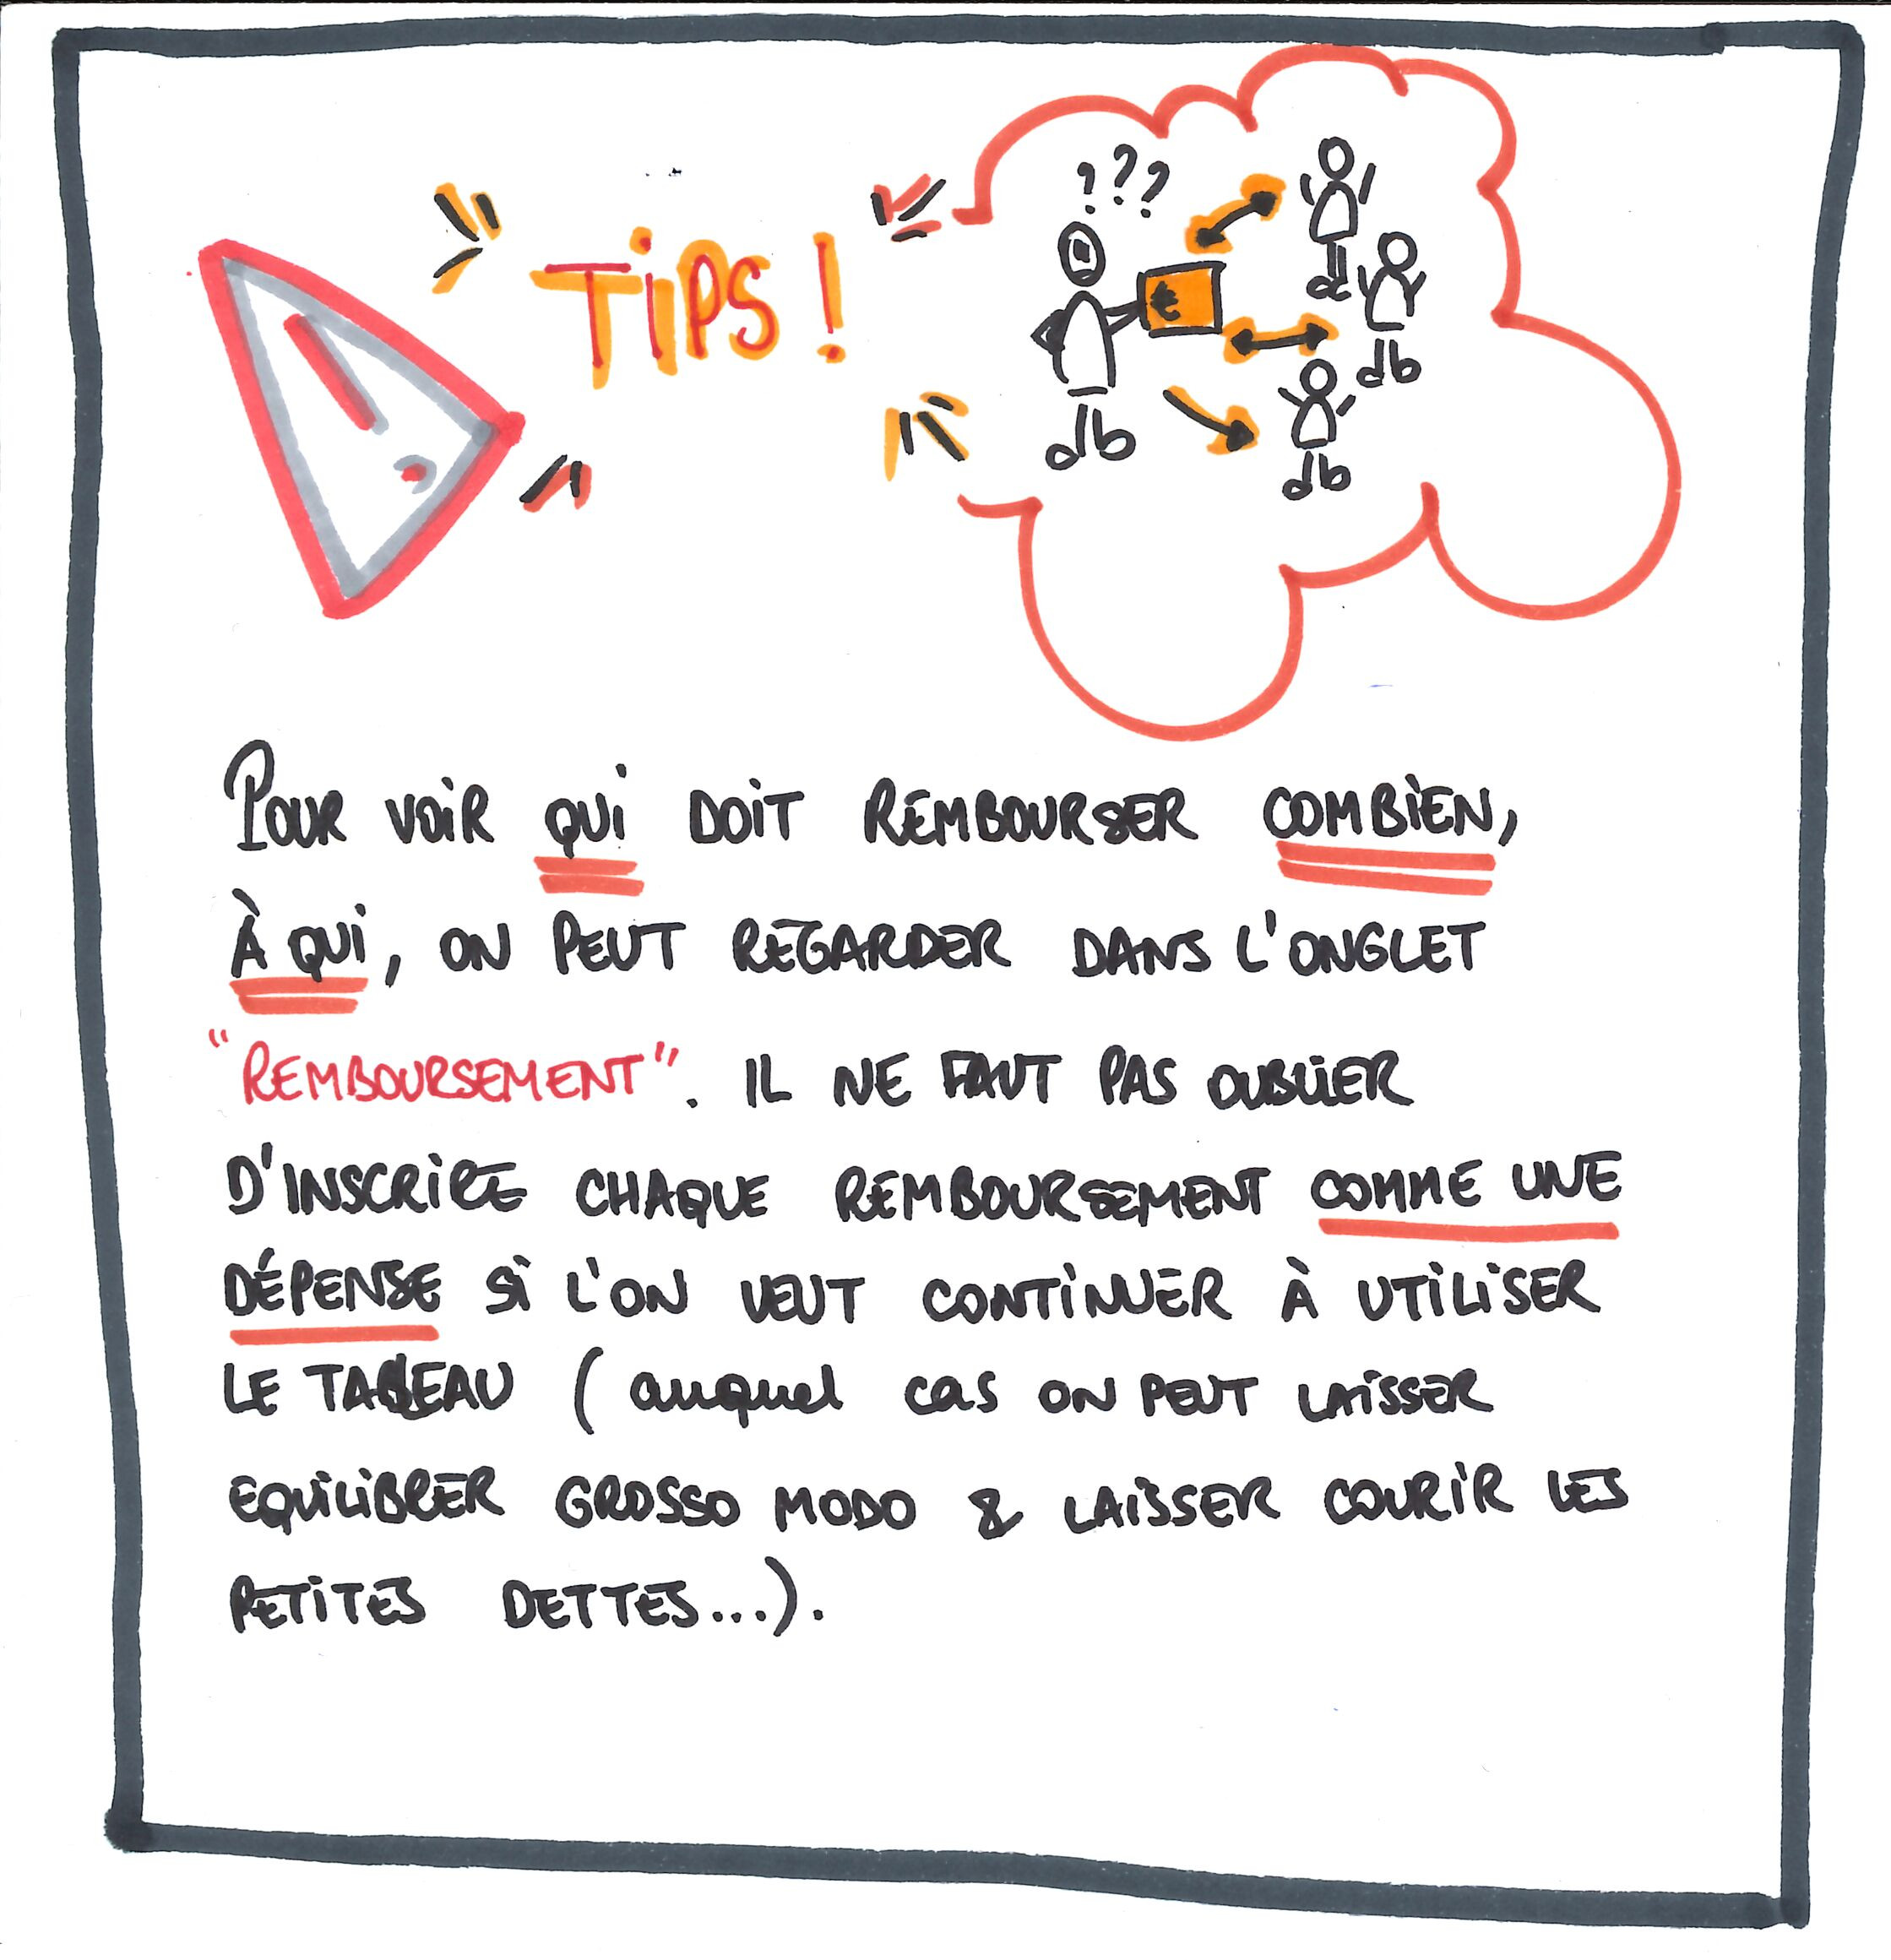 TiPS !
???
POUR VOIR QUI DOIT REMBOURSER COMBIEN,
À QUI, ON PEUT REGARDER DANS L'ONGLET
"REMBOURSEMENT". IL NE FAUT PAS OUBLIER
D'INSCRIRE CHAQUE REMBOURSEMENT COMME UNE
DÉPENSE SI L'ON VEUT CONTINUER À UTILISER
LE TABLEAU ( auquel cas ON PEUT LAISSER
EQUILIBRER GROSSO MODO & LAISSER COURIR LES
PETITES DETTES...).